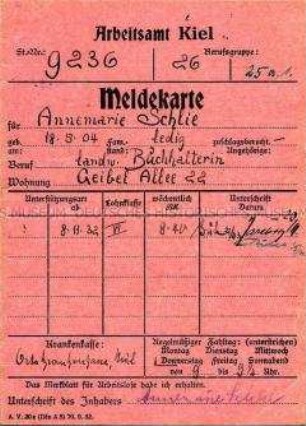 Arbeitsamt Kiel
St.-Nr.: Berufsgruppe:
9236 26 25 a 1.
Meldekarte
für Annemarie Schlie
geb. 18.9.04 Fam.- ledig
am: stand: Angehörige:
Beruf landw. Buchhalterin
Wohnung Geibel Allee 22
Unterstützungsart ab Lohnklasse wöchentlich RM Unterschrift Datum
8.11.32 VI 8.40
Krankenkasse:
Regelmäßiger Zahltag: (unterstreichen)
Montag Dienstag Mittwoch
Donnerstag Freitag Sonnabend
von 9 - 9½ Uhr.
Das Merkblatt für Arbeitslose habe ich erhalten.
Unterschrift des Inhabers Annemarie Schlie